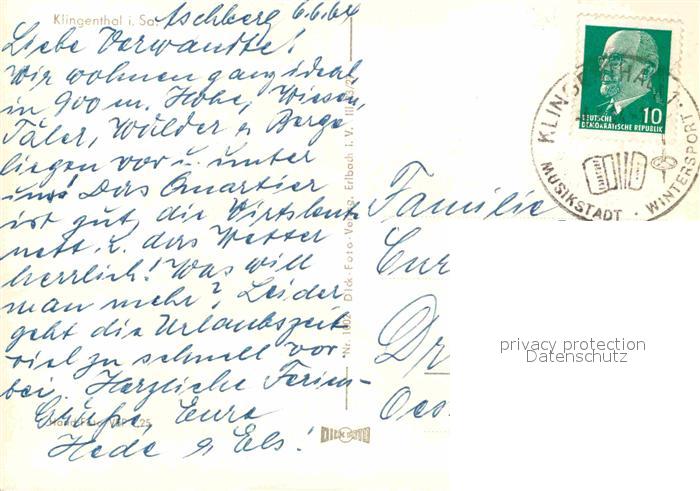 Klingenthal i. Sa.
Aschberg 6.6.64
Liebe Verwandte!
Wir wohnen ganz ideal
in 900 m. Höhe, Wiesen,
Täler, Wälder u. Berge
liegen vor u. unter
uns! Das Quartier
ist gut, die Wirtsleute
nett u. das Wetter
herrlich! Was will
man mehr? Leider
geht die Urlaubszeit
viel zu schnell vor-
bei. Herzliche Ferien-
Grüße, Eure
Hede u. Els!
Dick-Foto-Verlag, Erlbach i. V.
DICK FOTO
Familie
Cur
Dr
Oes
DEUTSCHE
DEMOKRATISCHE REPUBLIK
10
KLINGENTHAL
MUSIKSTADT · WINTERSPORT
privacy protection
Datenschutz